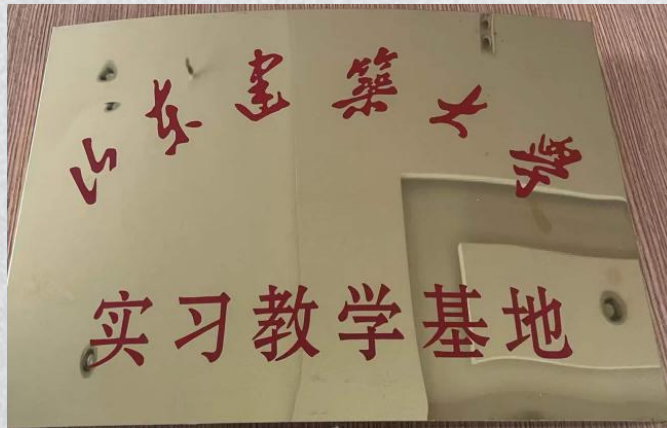 山东建築大學
实习教学基地